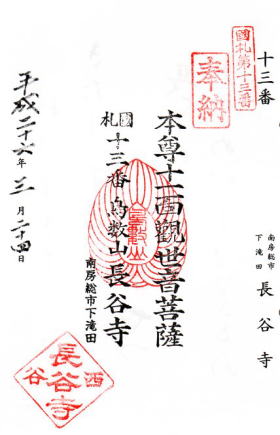 十三番
南房総市
下滝田
長谷寺
國札第十三番
奉納
本尊十一面観世音菩薩
國札十三番鳥数山長谷寺
南房総市下滝田
平成二十六年三月二十四日
西
長谷寺
谷